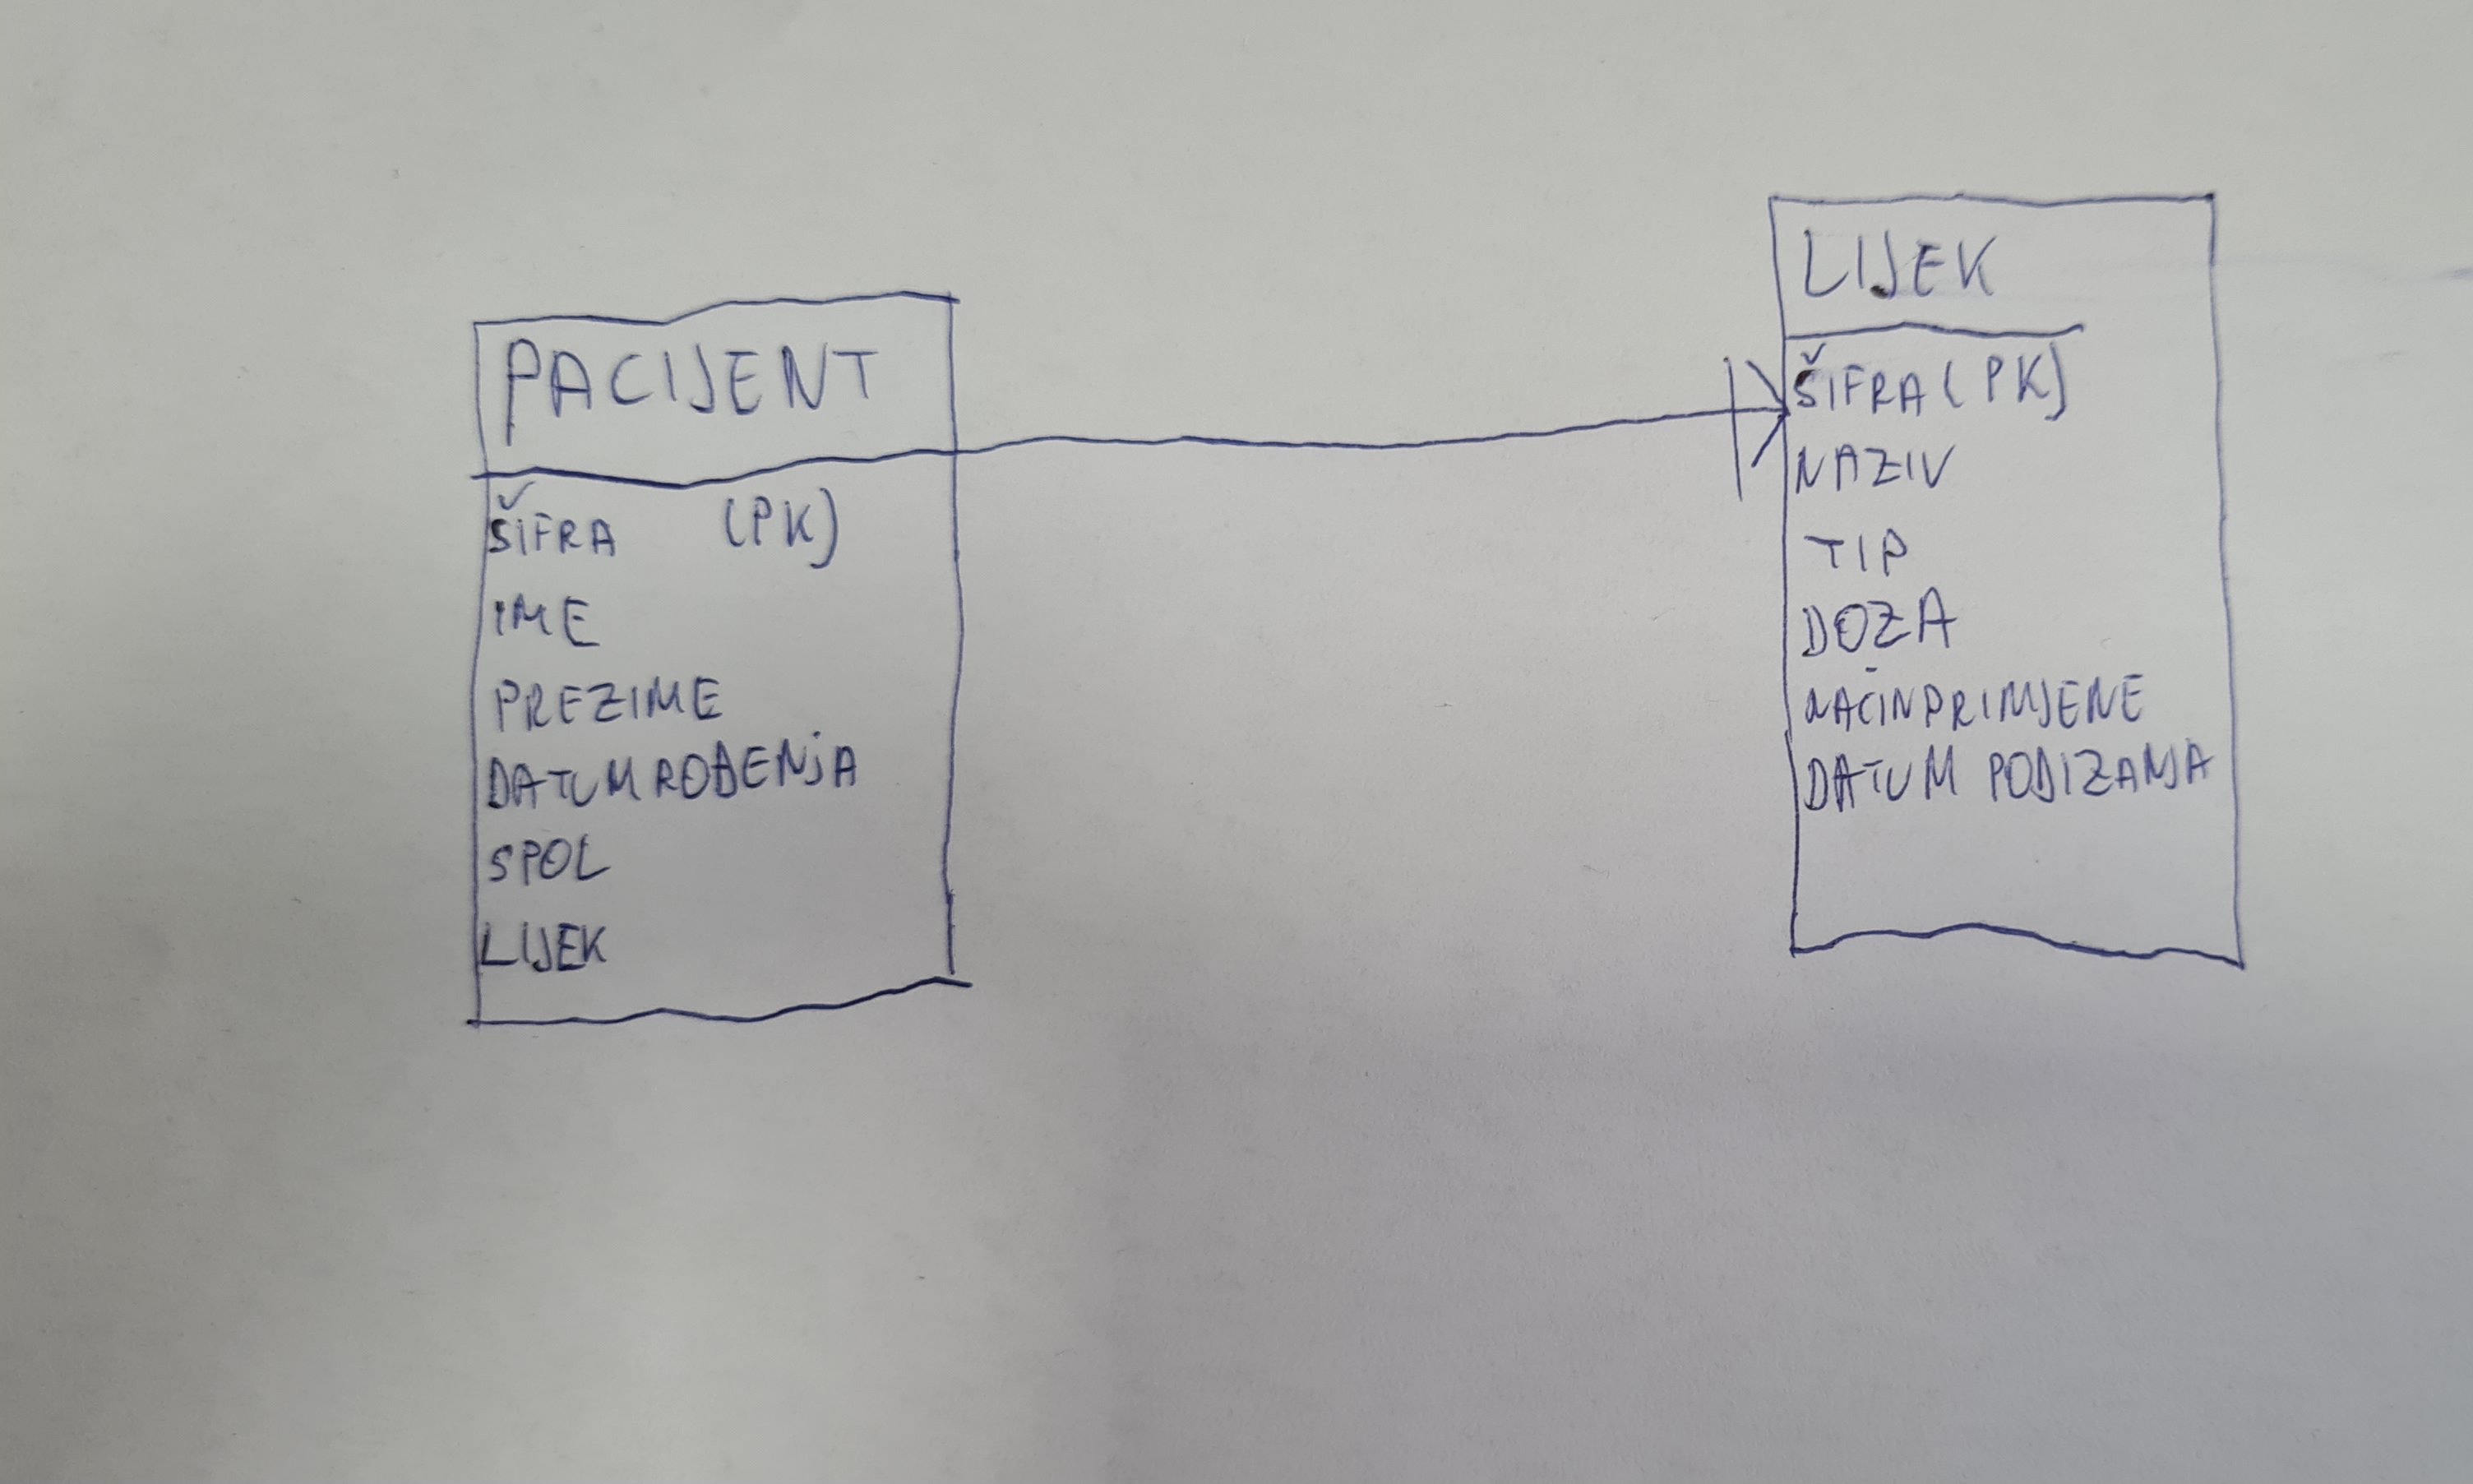 PACIJENT
ŠIFRA (PK)
IME
PREZIME
DATUM ROĐENJA
SPOL
LIJEK
LIJEK
ŠIFRA (PK)
NAZIV
TIP
DOZA
NAČINPRIMJENE
DATUM PODIZANJA